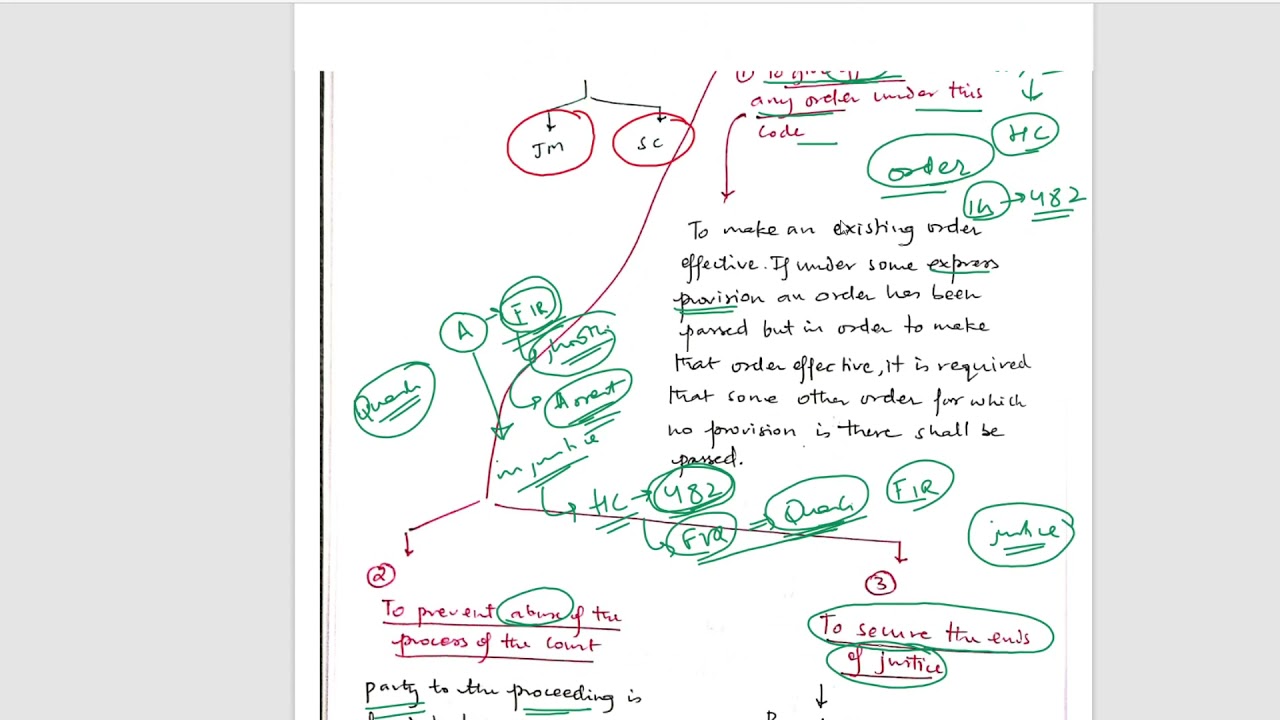 ① To give eff
any order under this
Code
HC
order
IH → 482
JM
SC
To make an existing order
effective. If under some express
provision an order has been
passed but in order to make
that order effective, it is required
that some other order for which
no provision is there shall be
passed.
A → FIR
Arrest
Quash
injustice
HC → 482
FIR ⇒ Quash
FIR
justice
②
To prevent abuse of the
process of the Court
party to the proceeding is
③
To secure the ends
of justice